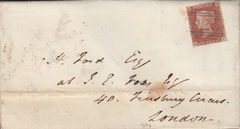 H. Ford Esq
at J. E. Fox Esq
40. Finsbury Circus.
London.